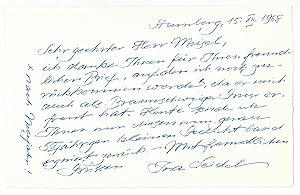 Hamburg, 15. XII. 1968
Sehr geehrter Herr Meisel,
ich danke Ihnen für Ihren freund-
lichen Brief, auf den ich noch zu-
rückkommen werde x, da er mich
auch als Braunschweigerin er-
freut hat. Heute sende ich
Ihnen nur diesen nun genau
jährigen kleinen Gedichtband
signiert zurück. Mit freundlichen
Grüßen Ina Seidel
x nach Neujahr!